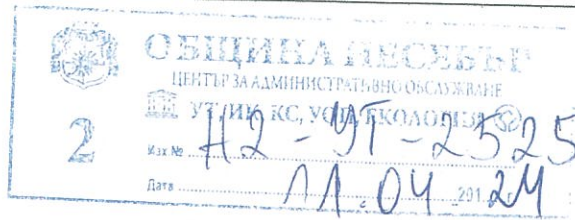 ОБЩИНА НЕСЕБЪР
ЦЕНТЪР ЗА АДМИНИСТРАТИВНО ОБСЛУЖВАНЕ
УТ, ИК, КС, УОИ, ЕКОЛОГИЯ
2
Изх № Н2-УТ-2525
Дата 11.04.201 24